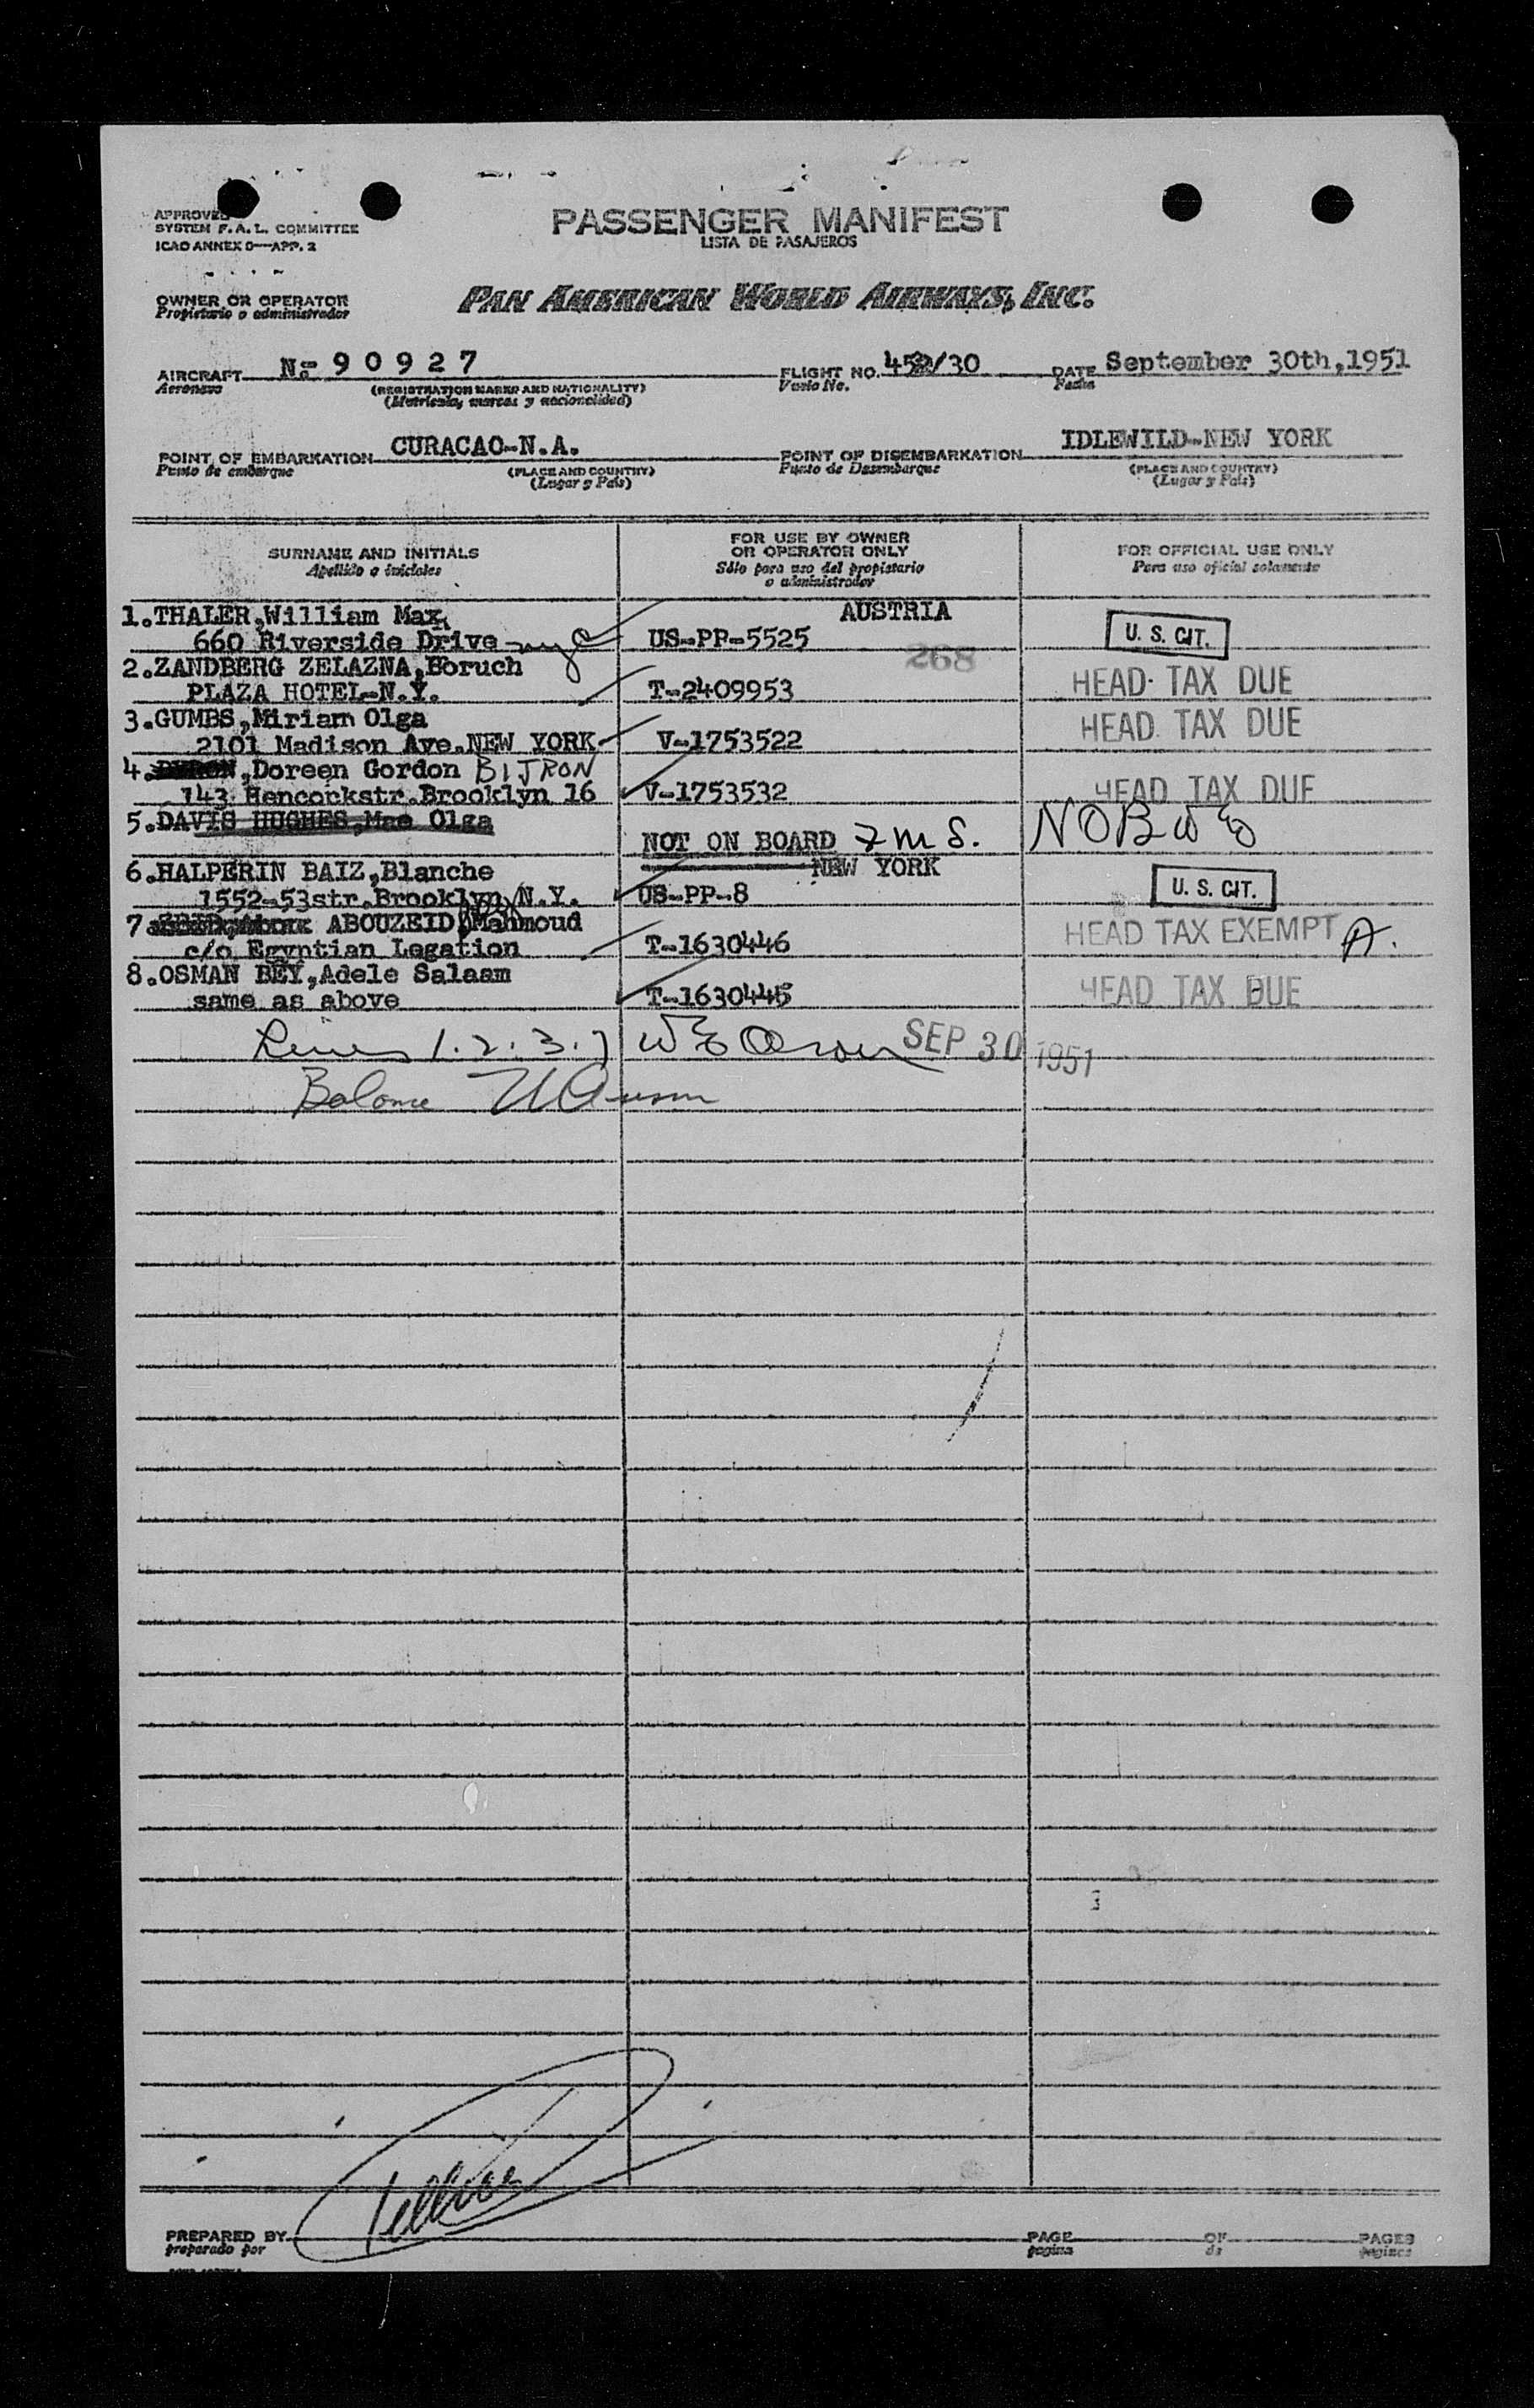 APPROVED
SYSTEM F.A.L. COMMITTEE
ICAO ANNEX 9—APP. 2
PASSENGER MANIFEST
LISTA DE PASAJEROS
OWNER OR OPERATOR
Propietario o administrador
PAN AMERICAN WORLD AIRWAYS, INC.
AIRCRAFT N.- 90927 FLIGHT NO. 452/30 DATE September 30th,1951
Aeronave (REGISTRATION MARKS AND NATIONALITY) Vuelo No. Fecha
(Matricula, marcas y nacionalidad)
POINT OF EMBARKATION CURACAO-N.A. POINT OF DISEMBARKATION IDLEWILD-NEW YORK
Punto de embarque (PLACE AND COUNTRY) Punto de Desembarque (PLACE AND COUNTRY)
(Lugar y País) (Lugar y País)
SURNAME AND INITIALS
Apellido o iniciales
FOR USE BY OWNER
OR OPERATOR ONLY
Sólo para uso del propietario
o administrador
FOR OFFICIAL USE ONLY
Para uso oficial solamente
1.THALER,William Max AUSTRIA
660 Riverside Drive nyc US-PP-5525 U. S. CIT.
2.ZANDBERG ZELAZNA,Boruch 268
PLAZA HOTEL-N.Y. T-2409953 HEAD TAX DUE
3.GUMBS,Miriam Olga
2101 Madison Ave.NEW YORK V-1753522 HEAD TAX DUE
4. ,Doreen Gordon BIJRON
143 Hencockstr.Brooklyn 16 V-1753532 HEAD TAX DUE
5.DAVIS HUGHES,Mae Olga
NOT ON BOARD 7 m S. NOB
6.HALPERIN BAIZ,Blanche NEW YORK
1552-53str.Brooklyn N.Y. US-PP-8 U. S. CIT.
7. ABOUZEID,Mahmoud
c/o Egyptian Legation T-1630446 HEAD TAX EXEMPT A.
8.OSMAN BEY,Adele Salaam
same as above T-1630445 HEAD TAX DUE
Lines 1. 2. 3. 7 SEP 30 1951
Balance
PREPARED BY PAGE OF PAGES
preparado por pagina de paginas